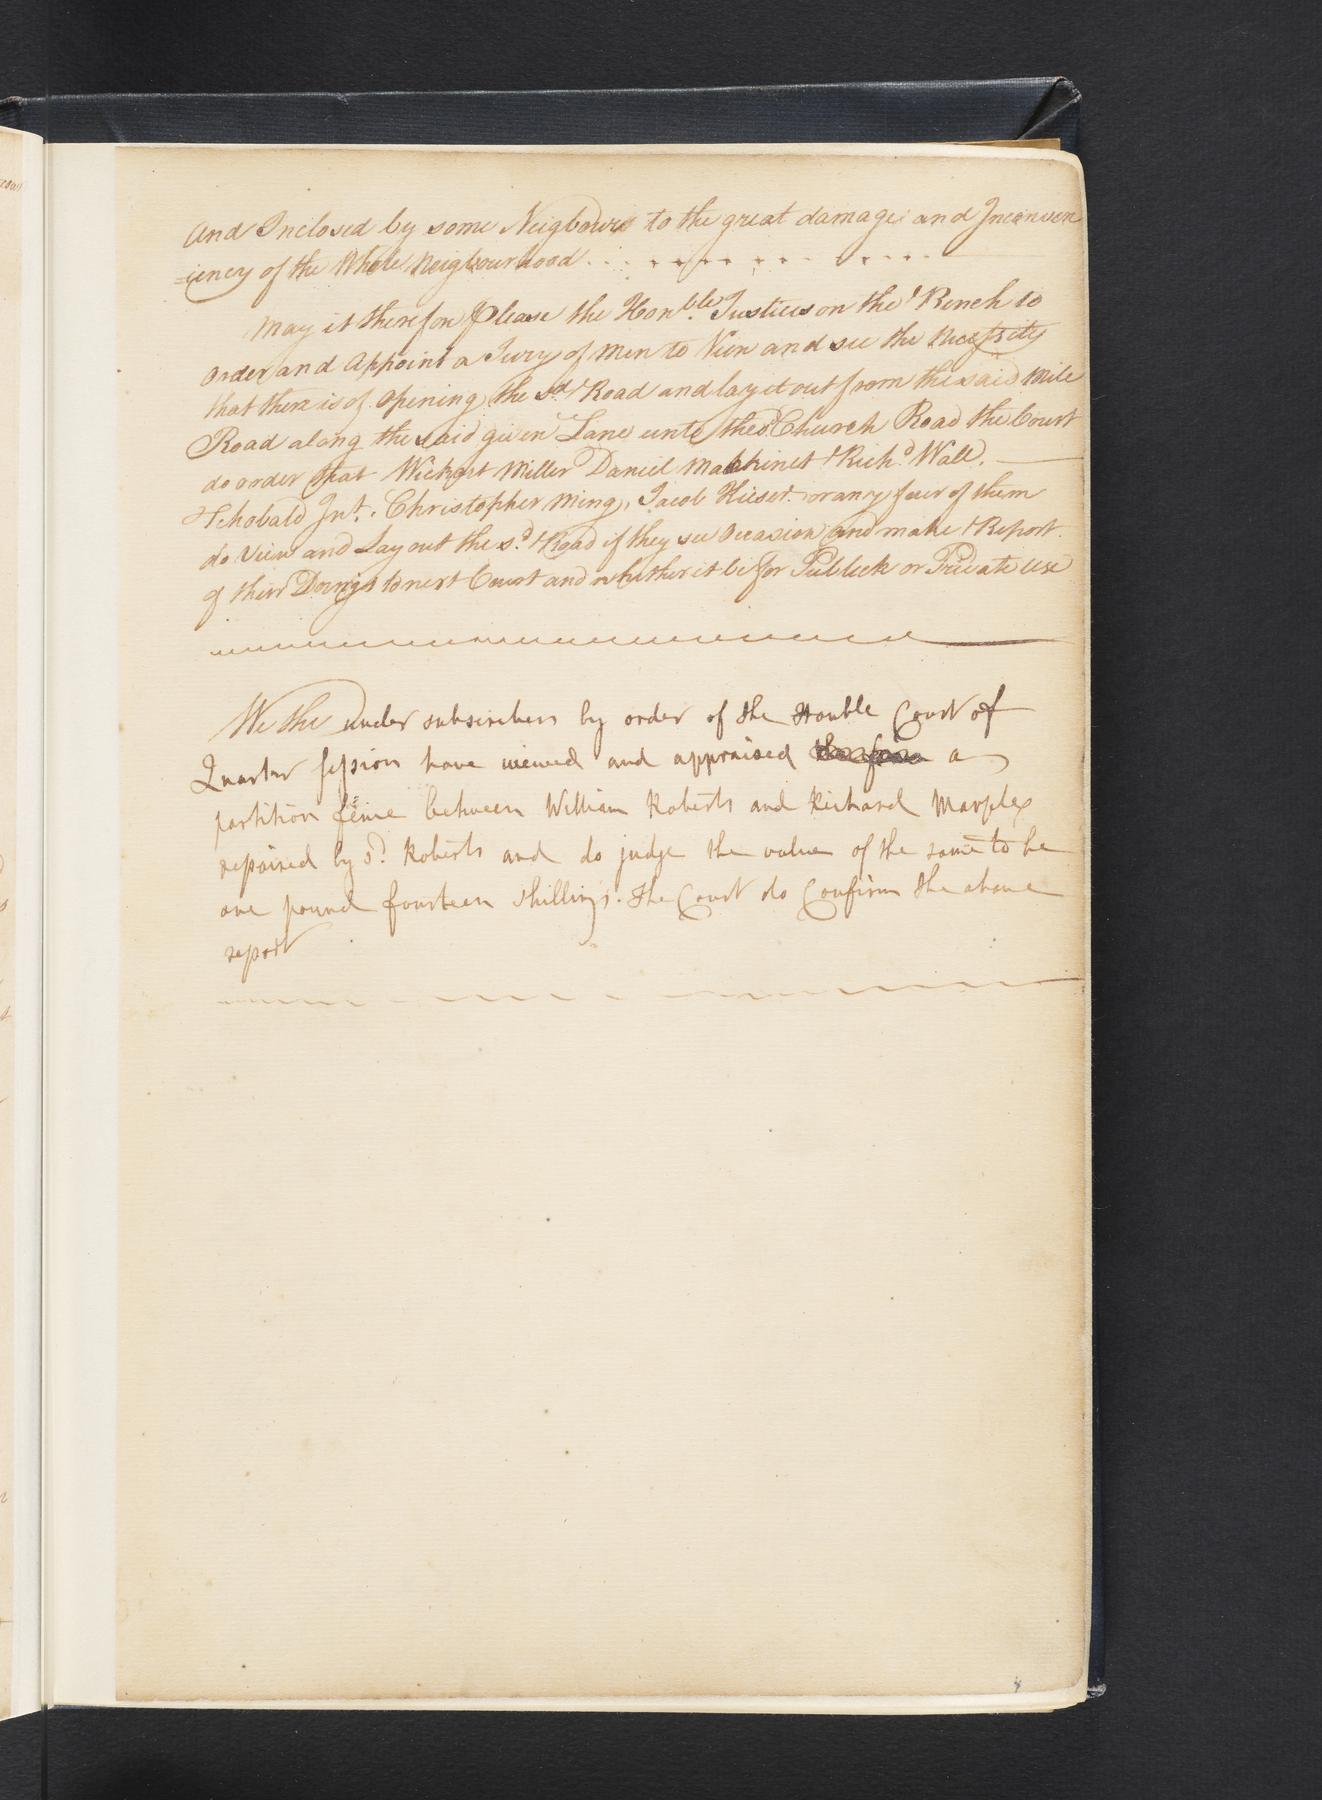 and Inclosed by some Neigbours to the great damage and Inconven
=iency of the Whole Neigbourhood
May it therefore Please the Honble. Justices on the Bench to
order and Appoint a Jury of Men to View and see the Necessity
that there is of Opening the sd Road and lay it out from the said Mile
Road along the said given Lane unto the Church Road the Court
do order that Wickart Miller Daniel Mackinet Richd. Wall.
Christopher Ming, Jacob or any four of them
do View and Lay out the sd. Road if they see Occasion and make Report
of their Doings to next Court and whether it be for Publick or Private use
We the under subscribers by order of the Honble Court of
Quarter session have viewed and appraised a
partition fence between William Roberts and Richard Marple
repaired by sd. Roberts and do judge the value of the same to be
one pound fourteen shillings. The Court do Confirm the above
report